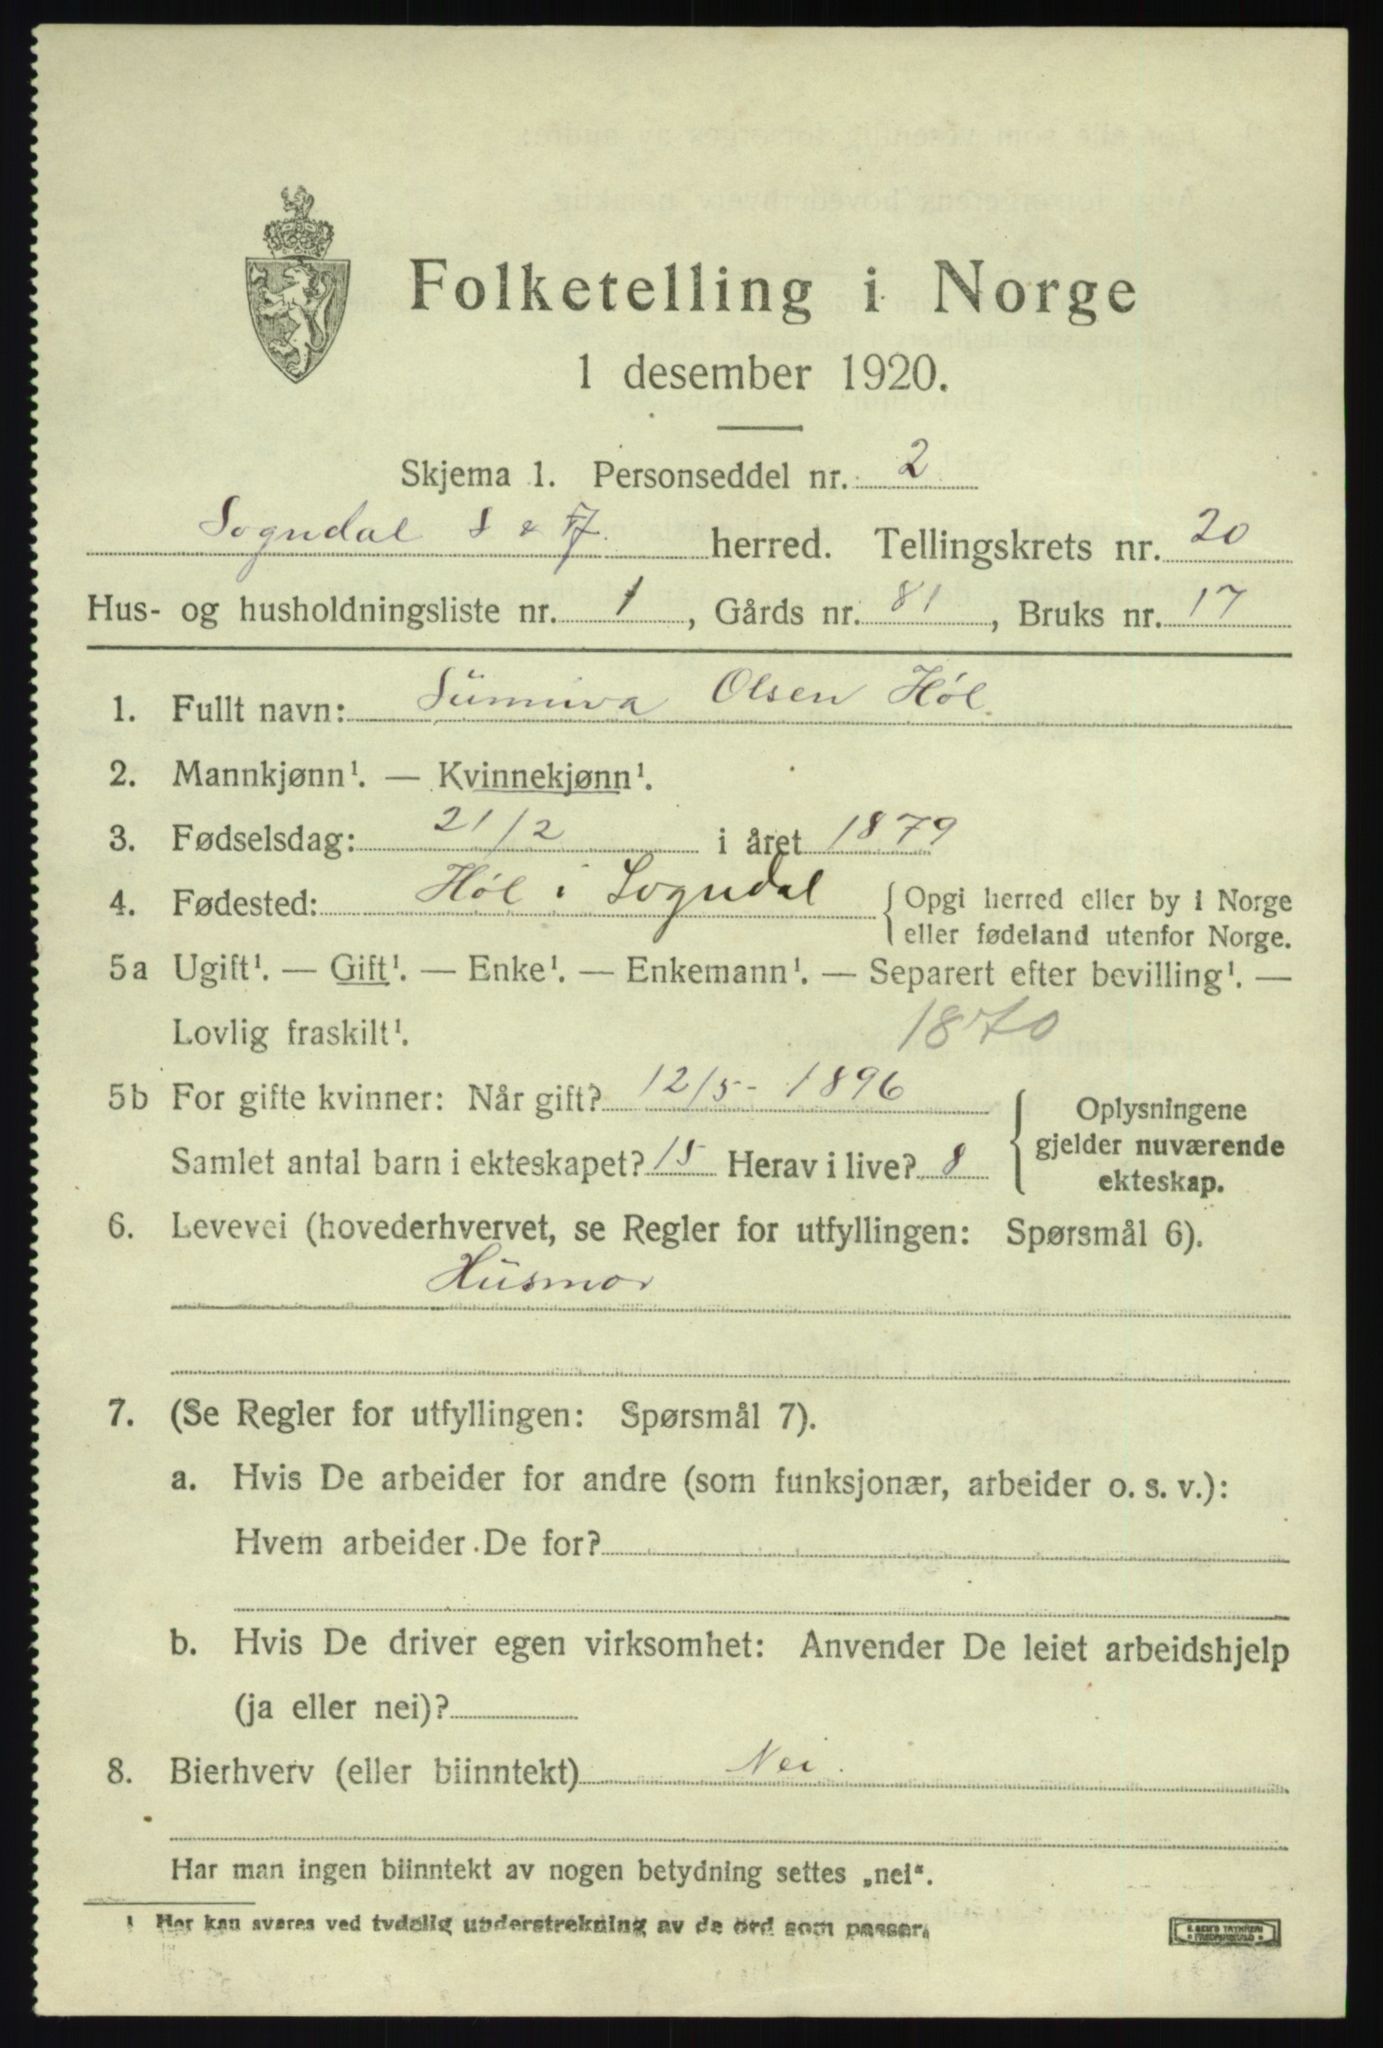 Folketelling i Norge
1 desember 1920.
Skjema 1. Personseddel nr. 2
Sogndal S & Fj. herred. Tellingskrets nr. 20
Hus- og husholdningsliste nr. 1, Gårds nr. 81, Bruks nr. 17
1. Fullt navn: Sünniva Olsen Høl.
2. Mannkjønn¹. — Kvinnekjønn¹.
3. Fødselsdag: 21/2 i året 1879
4. Fødested: Høl i Sogndal { Opgi herred eller by i Norge
eller fødeland utenfor Norge.
5a Ugift¹. — Gift¹. — Enke¹. — Enkemann¹. — Separert efter bevilling¹. —
Lovlig fraskilt¹. 1870
5b For gifte kvinner: Når gift? 12/5 - 1896
Samlet antal barn i ekteskapet? 15 Herav i live? 8
{ Oplysningene
gjelder nuværende
ekteskap.
6. Levevei (hovederhvervet, se Regler for utfyllingen: Spørsmål 6).
Hüsmor
7. (Se Regler for utfyllingen: Spørsmål 7).
a. Hvis De arbeider for andre (som funksjonær, arbeider o. s. v.):
Hvem arbeider De for?
b. Hvis De driver egen virksomhet: Anvender De leiet arbeidshjelp
(ja eller nei)?
8. Bierhverv (eller biinntekt) Nei.
Har man ingen biinntekt av nogen betydning settes „nei“.
¹ Her kan svares ved tydelig understrekning av de ord som passer.